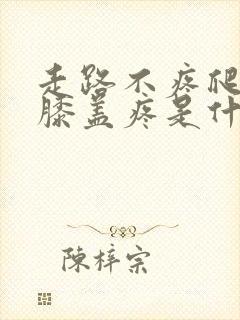 走路不疼爬
膝盖疼是什
陳梓宗